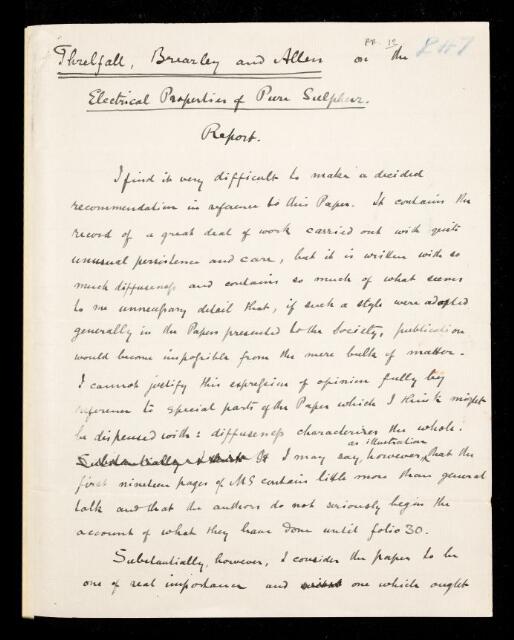 RR. 12
247
Threlfall, Brearley and Allen on the
Electrical Properties of Pure Sulphur.
Report.
I find it very difficult to make a decided
recommendation in reference to this Paper. It contains the
record of a great deal of work carried out with quite
unusual persistence and care, but it is written with so
much diffuseness and contains so much of what seems
to me unnecessary detail that, if such a style were adopted
generally in the Papers presented to the Society, publication
would become impossible from the mere bulk of matter.
I cannot justify this expression of opinion fully by
reference to special parts of the Paper which I think might
be dispensed with: diffuseness characterizes the whole.
as illustration
Substantially I may say, however, that the
first nineteen pages of MS contains little more than general
talk and that the authors do not seriously begin the
account of what they have done until folio 30.
Substantially, however, I consider the paper to be
one of real importance and one which ought